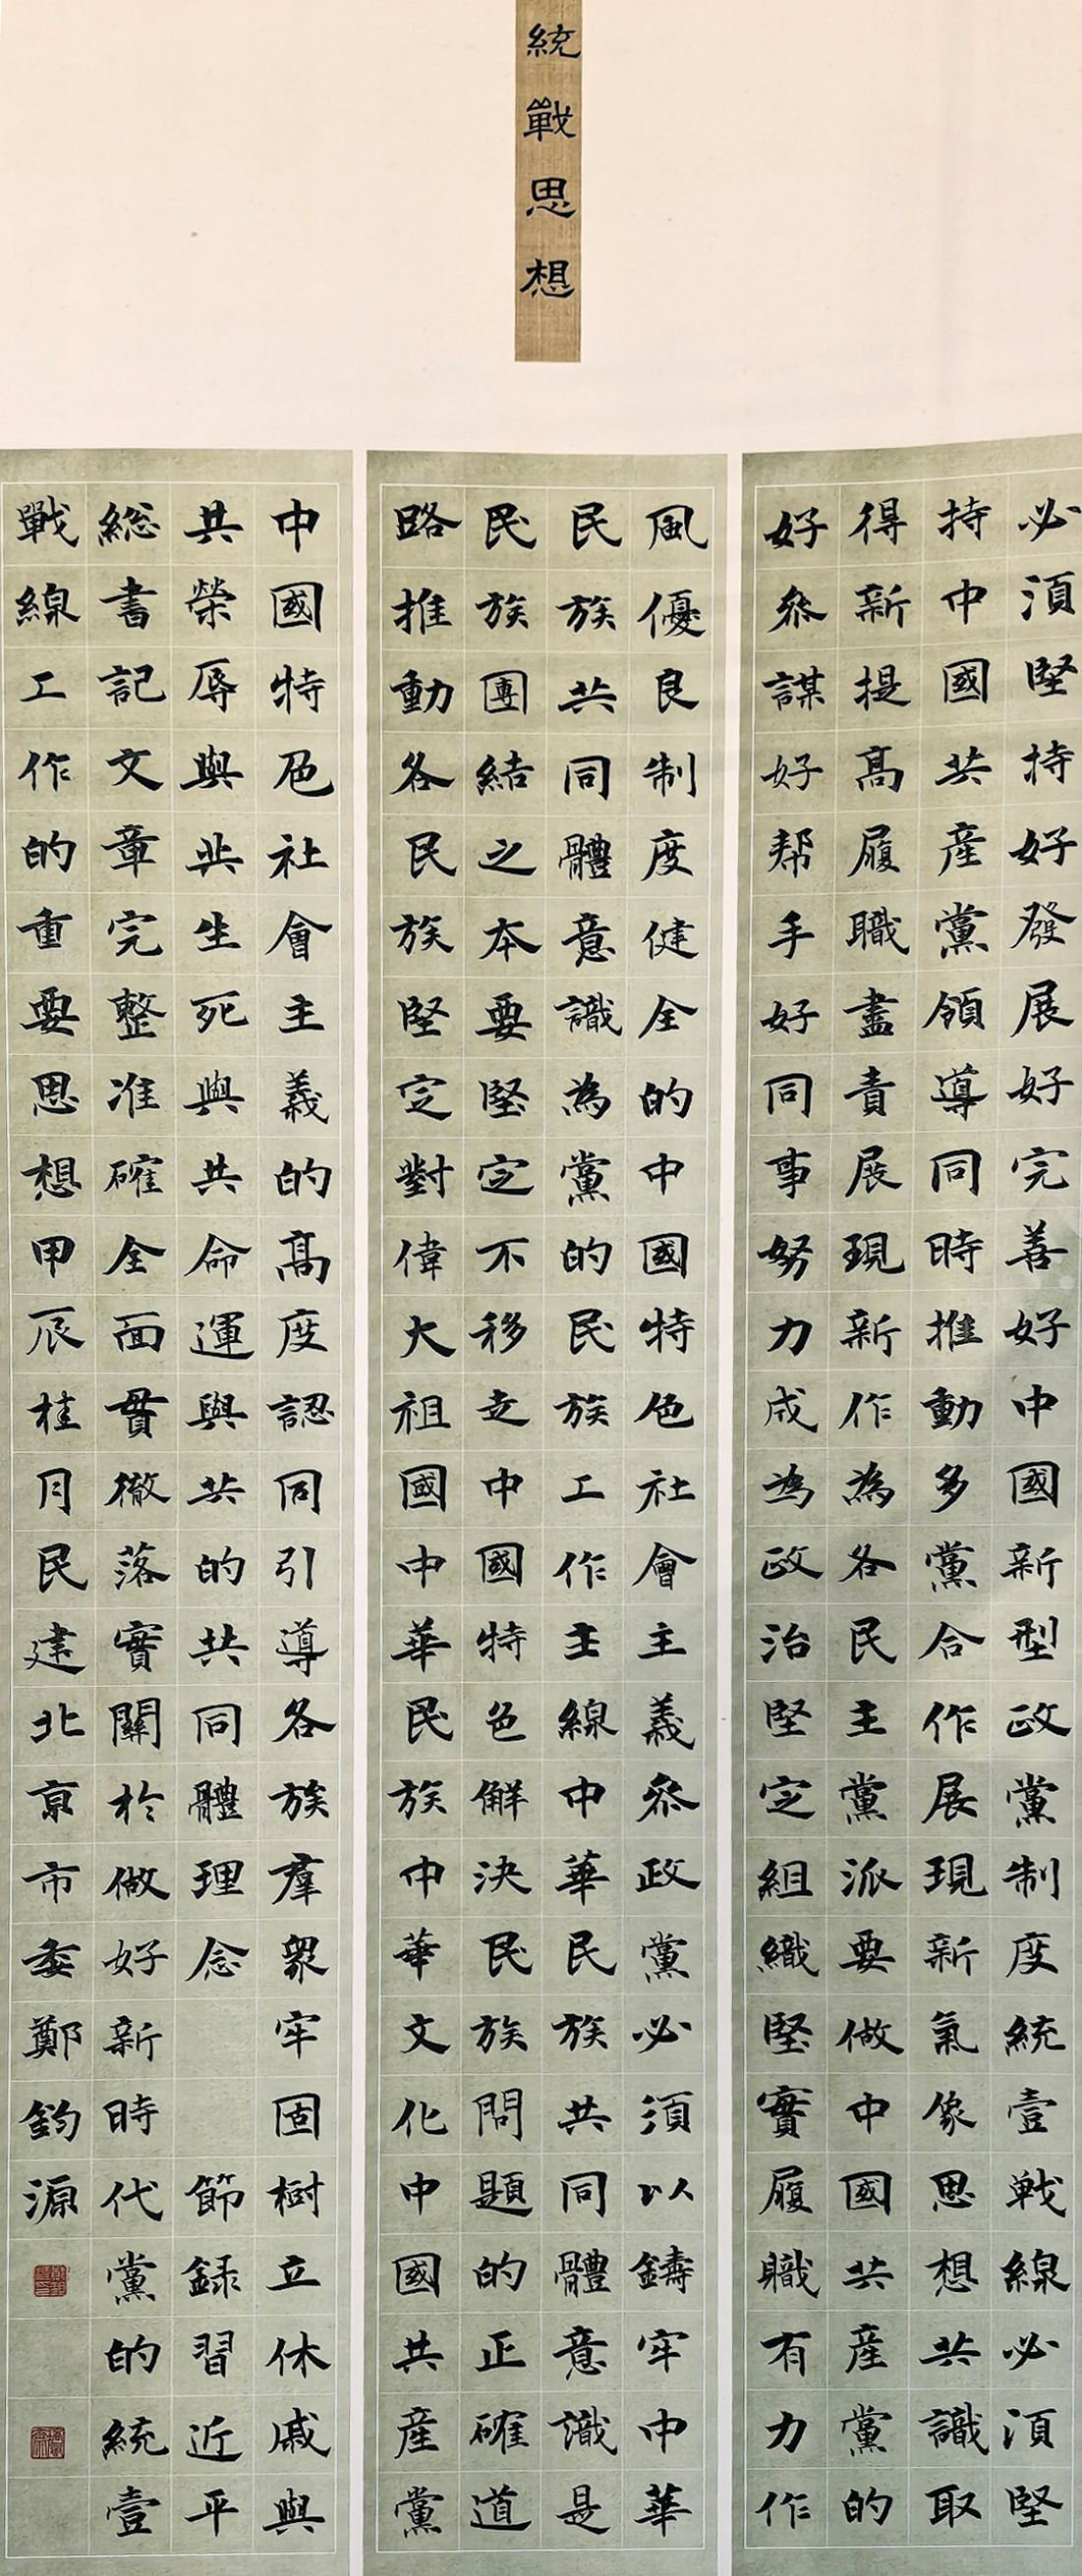 統戰思想
必須堅持好發展好完善好中國新型政黨制度統壹戰線必須堅
持中國共產黨領導同時推動多黨合作展現新氣像思想共識取
得新提高履職盡責展現新作為各民主黨派要做中國共產黨的
好參謀好帮手好同事努力成為政治堅定組織堅實履職有力作
風優良制度健全的中國特色社會主義參政黨必須以鑄牢中華
民族共同體意識為黨的民族工作主線中華民族共同體意識是
民族團結之本要堅定不移走中國特色解決民族問題的正確道
路推動各民族堅定對偉大祖國中華民族中華文化中國共產黨
中國特色社會主義的高度認同引導各族羣衆牢固樹立休戚與
共榮辱與共生死與共命運與共的共同體理念 節録習近平
総書記文章完整准確全面貫徹落實關於做好新時代黨的統壹
戰線工作的重要思想甲辰桂月民建北京市委鄭鈞源